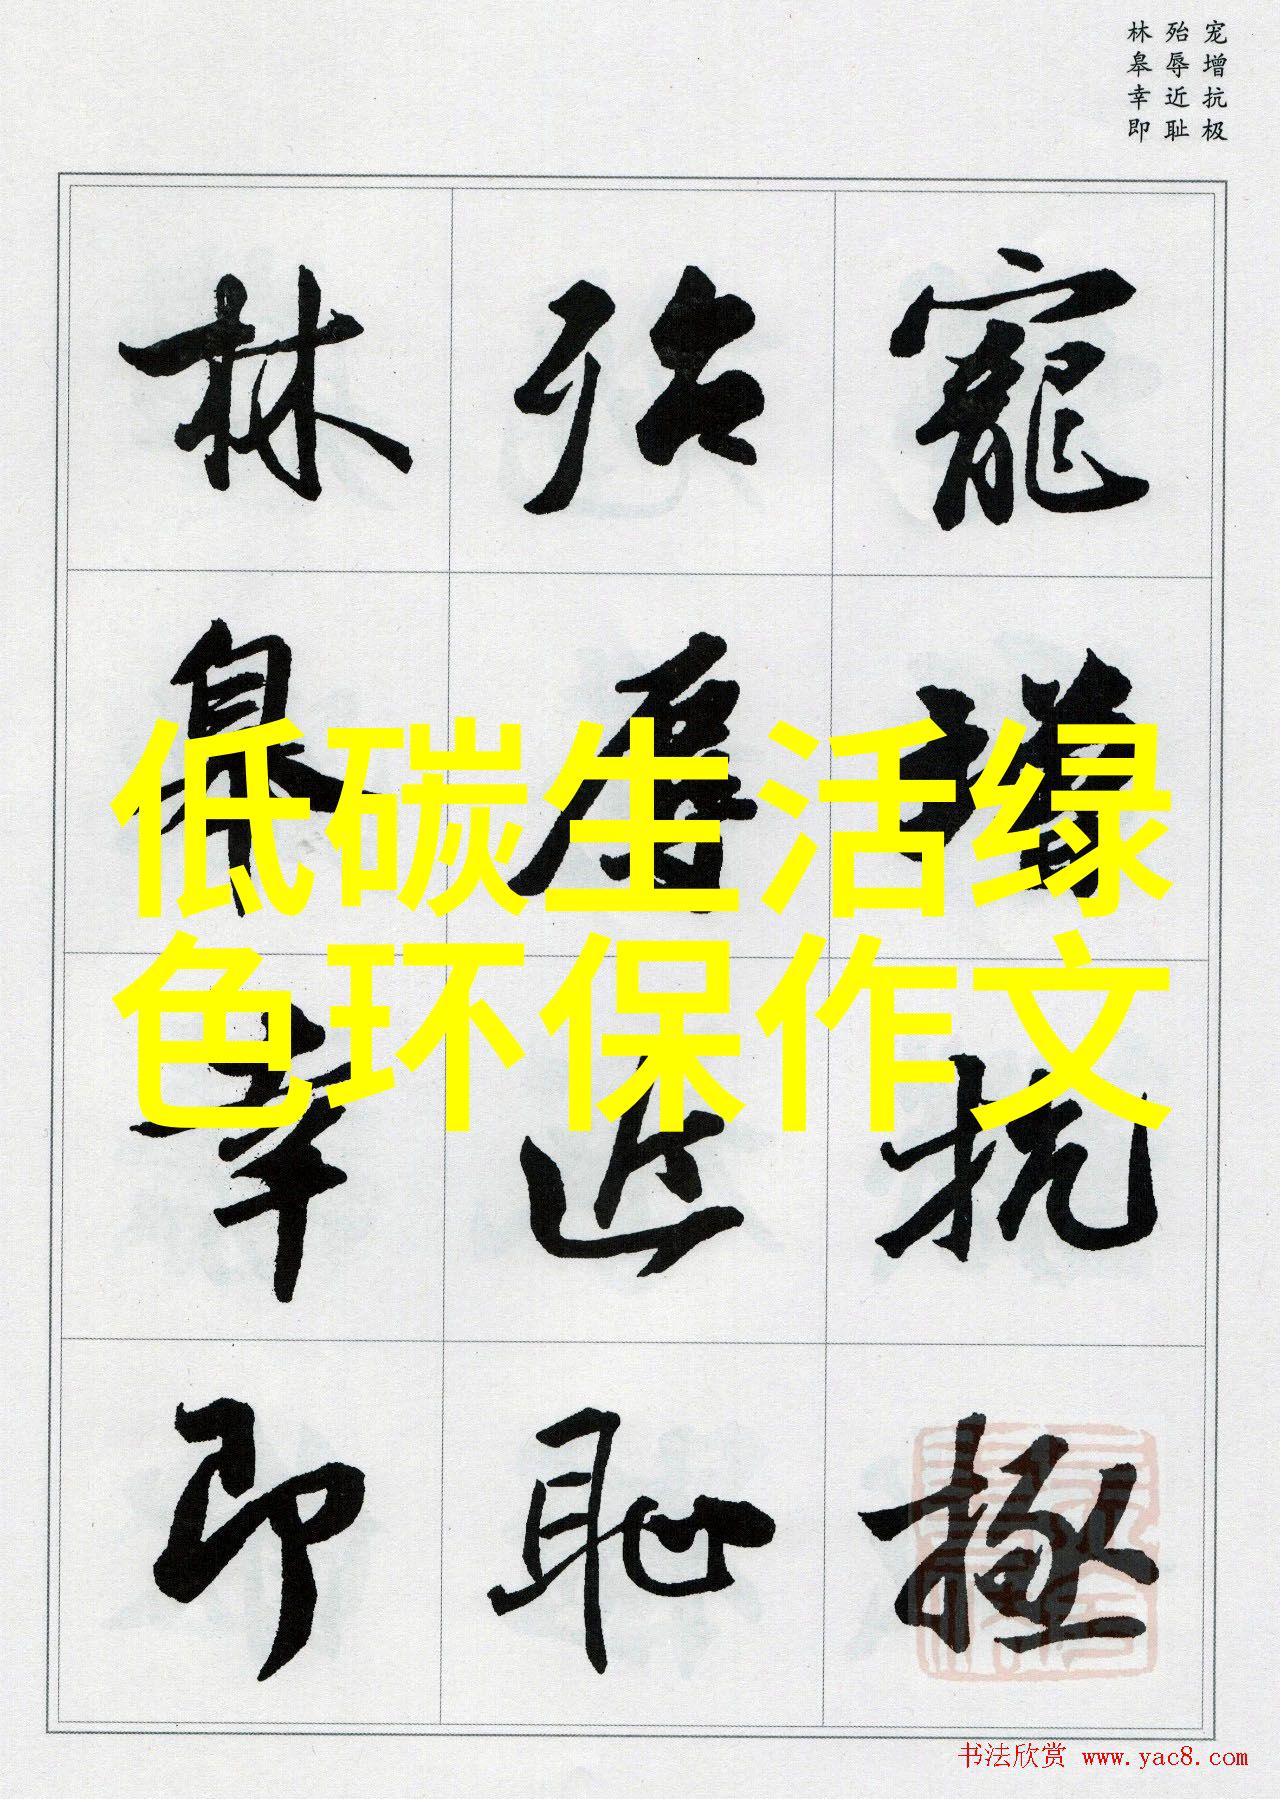 宠增抗极
殆辱近耻
林皋幸即
寵增抗極
殆辱近恥
林皋幸即
低碳生活绿
色环保作文
书法欣赏 www.yac8.com